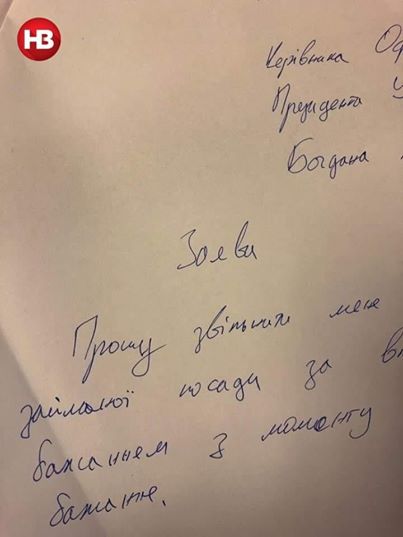 НВ
Керівника Оф
Президента У
Богдана
Заява
Прошу звільнити мене
займаної посади за вл
бажанням з моменту
бажання.